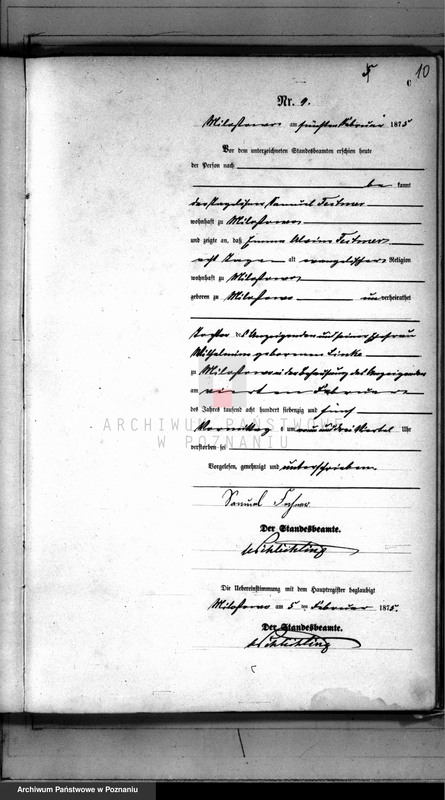 10
Nr. 9.
Milostowo am fünften Februar 1875
Vor dem unterzeichneten Standesbeamten erschien heute
der Person nach
be kannt
der Tagelöhner Samuel
wohnhaft zu Milostowo
und zeigte an, daß Emma
acht Tage alt evangelischer Religion
wohnhaft zu Milostowo
geboren zu Milostowo unverheirathet
Tochter des Anzeigenden und seiner Ehefrau
Wilhelmine geborenen Linke
zu Milostowo in der Behausung des Anzeigenden
am vierten Februar
des Jahres tausend acht hundert siebenzig und fünf
Vormittag s um neun und drei Viertel Uhr
verstorben sei
ARCHIWUM PAŃSTWOWE
W POZNANIU
Vorgelesen, genehmigt und unterschrieben
Samuel
Der Standesbeamte.
Schlichting
Die Uebereinstimmung mit dem Hauptregister beglaubigt
Milostowo am 5 ten Februar 1875.
Der Standesbeamte.
Schlichting
Archiwum Państwowe w Poznaniu